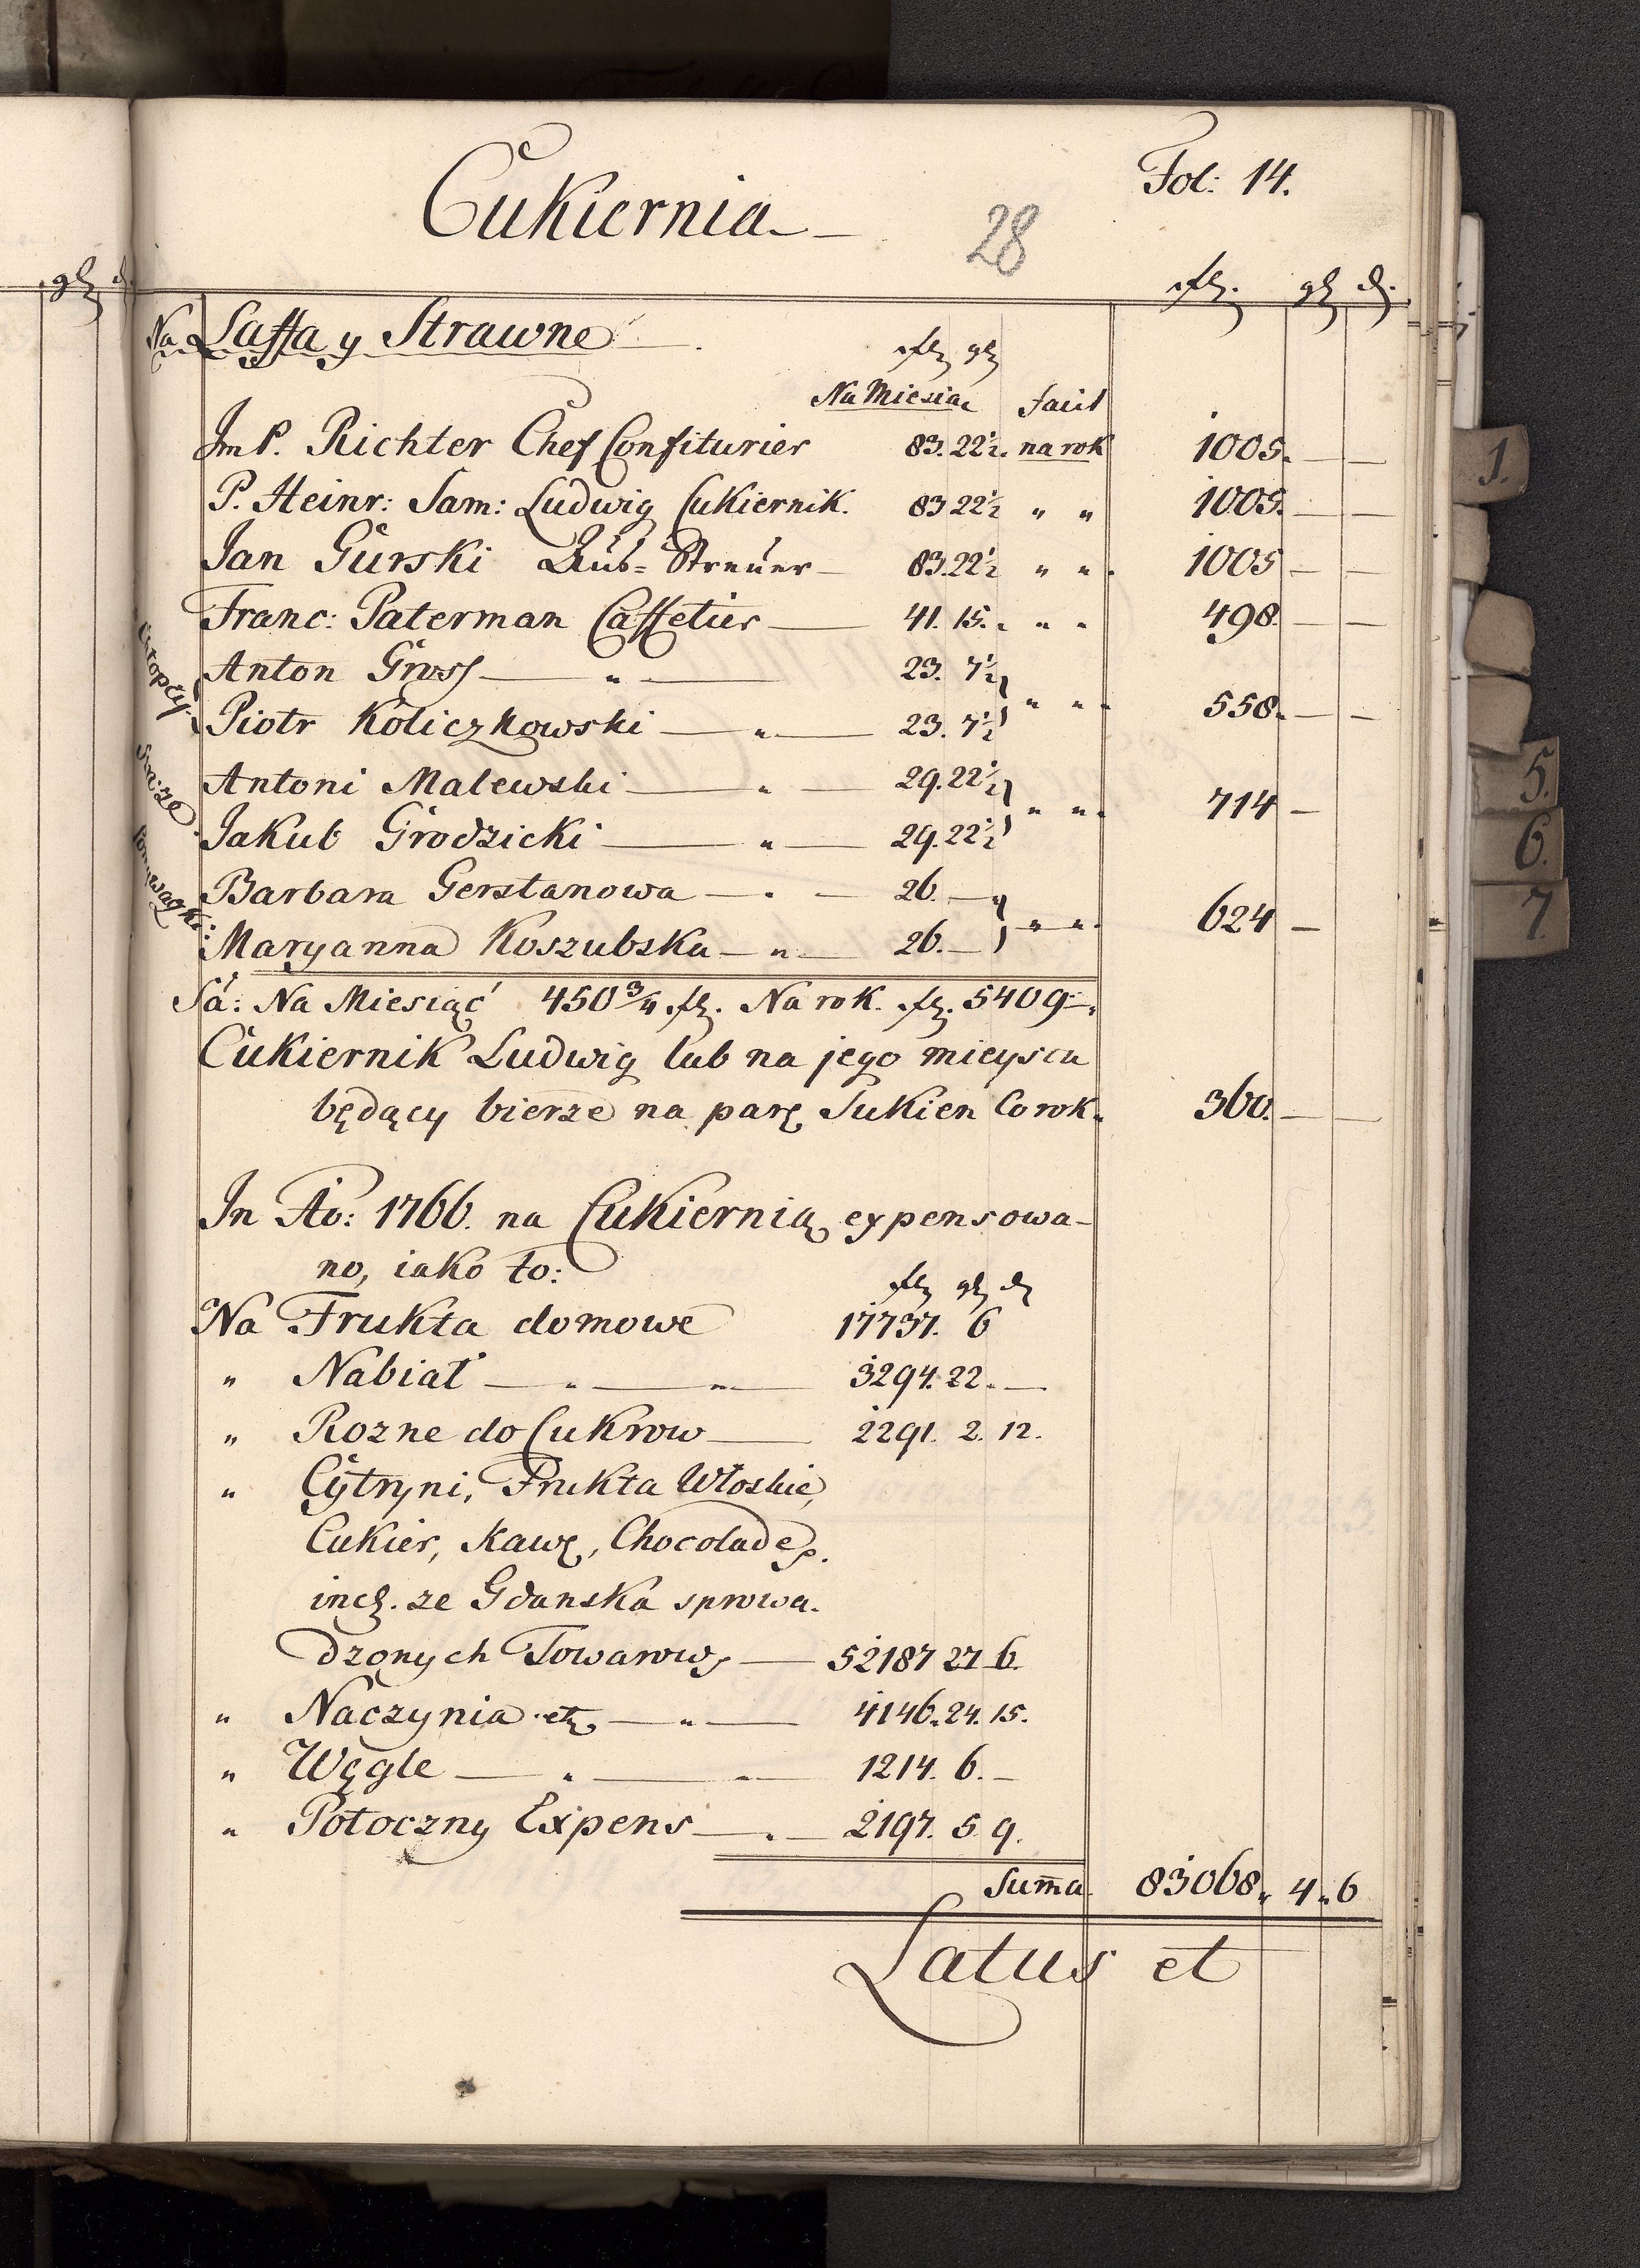 Fol: 14.
Cukiernia
28
flz. gl d.
Na Laffa y Strawne
fl gl
Na Miesiac facit
Jm P. Richter Chef Confiturier 83. 22½. na rok 1005. — —
P. Heinr: Sam: Ludwig Cukiernik. 83 22½ " " 1005. — —
Jan Gurski 83. 22½ " " 1005 — —
Franc: Paterman Caffetier — 41. 15. " " 498. — —
Chłopcy
Anton Gross — " — 23. 7½
Piotr Koliczkowski — " — 23. 7½ " " 558. — —
Antoni Malewski — " — 29. 22½
Jakub Grodzicki — " — 29. 22½ " " 714 —
Barbara Gerstanowa — " — 26. —
Maryanna Koszubska — " — 26. — " " 624 —
Sa: Na Miesiąć 450¾ fl. Na rok. fl. 5409 —.
Cukiernik Ludwig lub na jego mieyscu
będący bierze na parę Sukien Co rok. 360. — —
In Ao: 1766. na Cukiernią expensowa-
no, iako to:
fl gl d
Na Frukta domowe 17737. 6
" Nabiał — " — " — 3294. 22. —
" Rozne do Cukrow — 2291. 2. 12.
" Cytryni, Frukta Włoskie,
Cukier, Kawę, Chocolade p.
incl. ze Gdanska sprowa-
dzonych Towarow — 52187 27 6.
" Naczynia etc — " — 4146. 24. 15.
" Węgle — " — " — 1214. 6. —
" Potoczny Expens — " — 2197. 5. 9.
Suma. 83068. 4. 6
Latus et
1.
5.
6.
7.